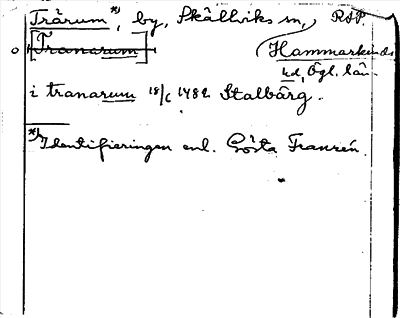 Trärum *), by, Skällviks sn, RAP.
[Tranarum] Hammarkinds
hd, Ögl. län.
i tranarum 18/6 1482 Stalbärg.
*) Identifieringen enl. Gösta Franzén.